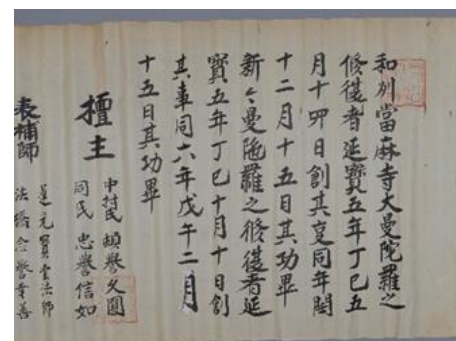 和州當麻寺大曼陀羅之
修復者延寶五年丁巳五
月十四日創其夏同年閏
十二月十五日其功畢
新之曼陀羅之修復者延
寶五年丁巳十月十日創
其事同六年戊午二月
十五日其功畢
檀主
中村氏 頓譽久圓
同氏 忠譽信如
表補師
元實 法師
法 念譽 善